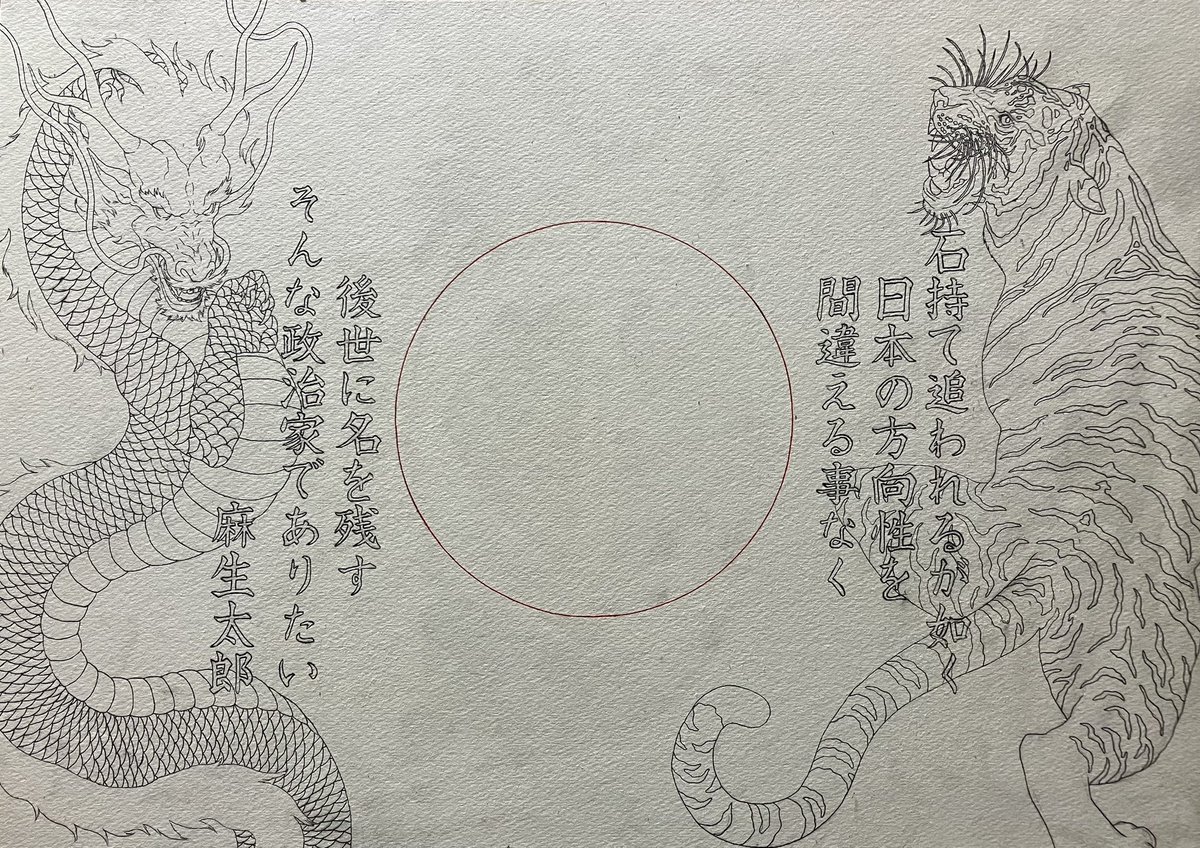 石持て追われるが如く
日本の方向性を
間違える事なく
後世に名を残す
そんな政治家でありたい
麻生太郎